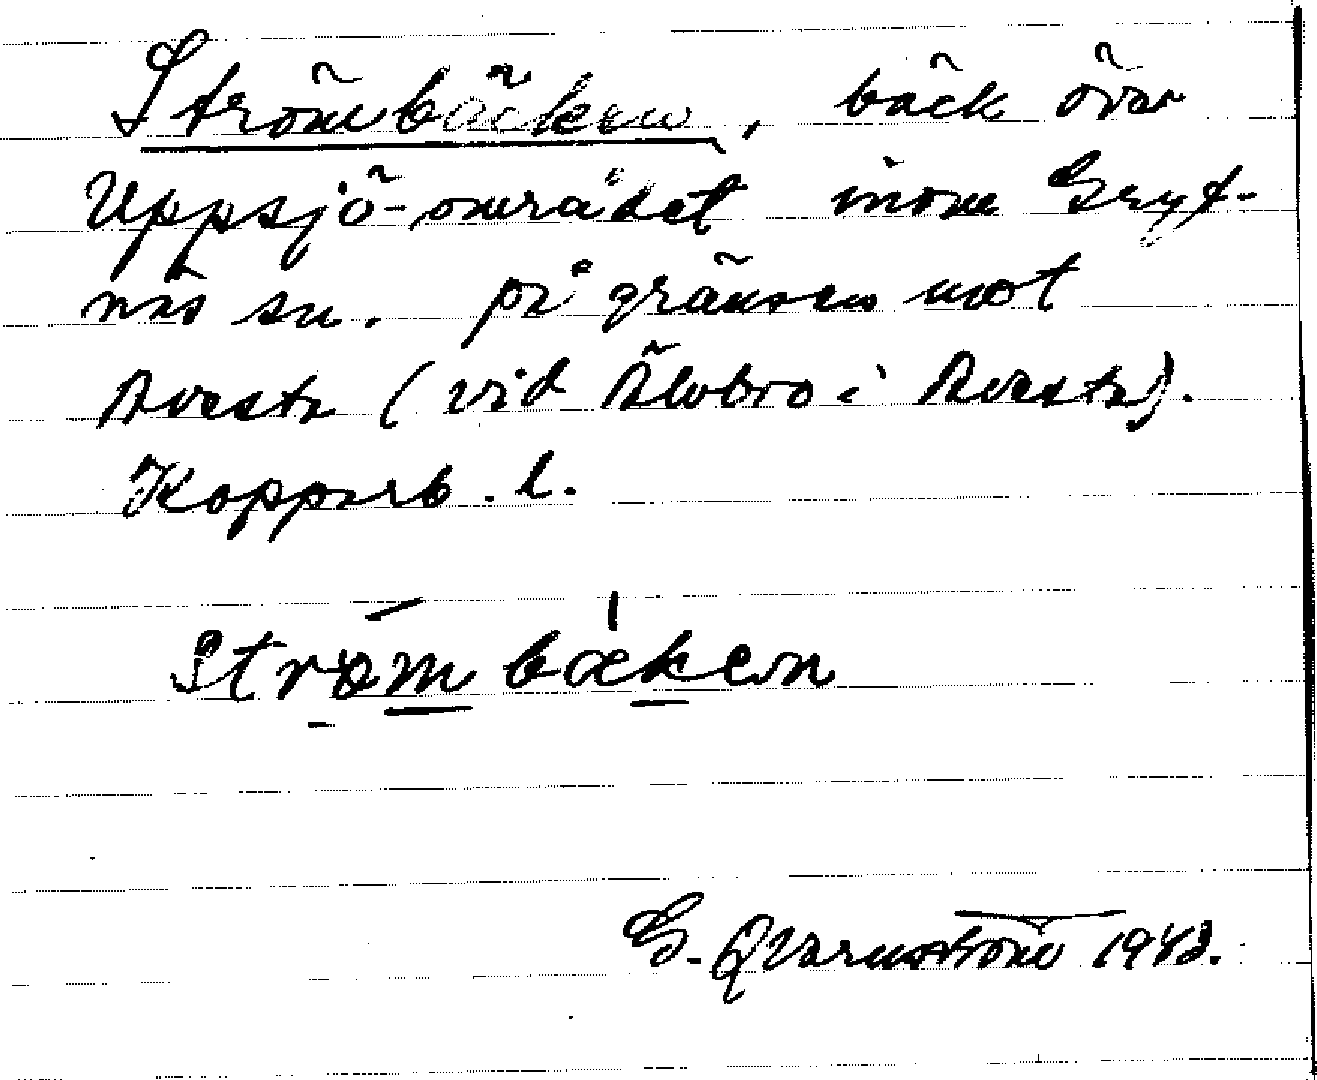 Strömbäcken, bäck över
Uppsjö-området inom Gryt-
näs sn. på gränsen mot
Avesta (vid Älvbro i Avesta).
Kopparb. l.
Strøm bæken
G. Qvarnström 1943.